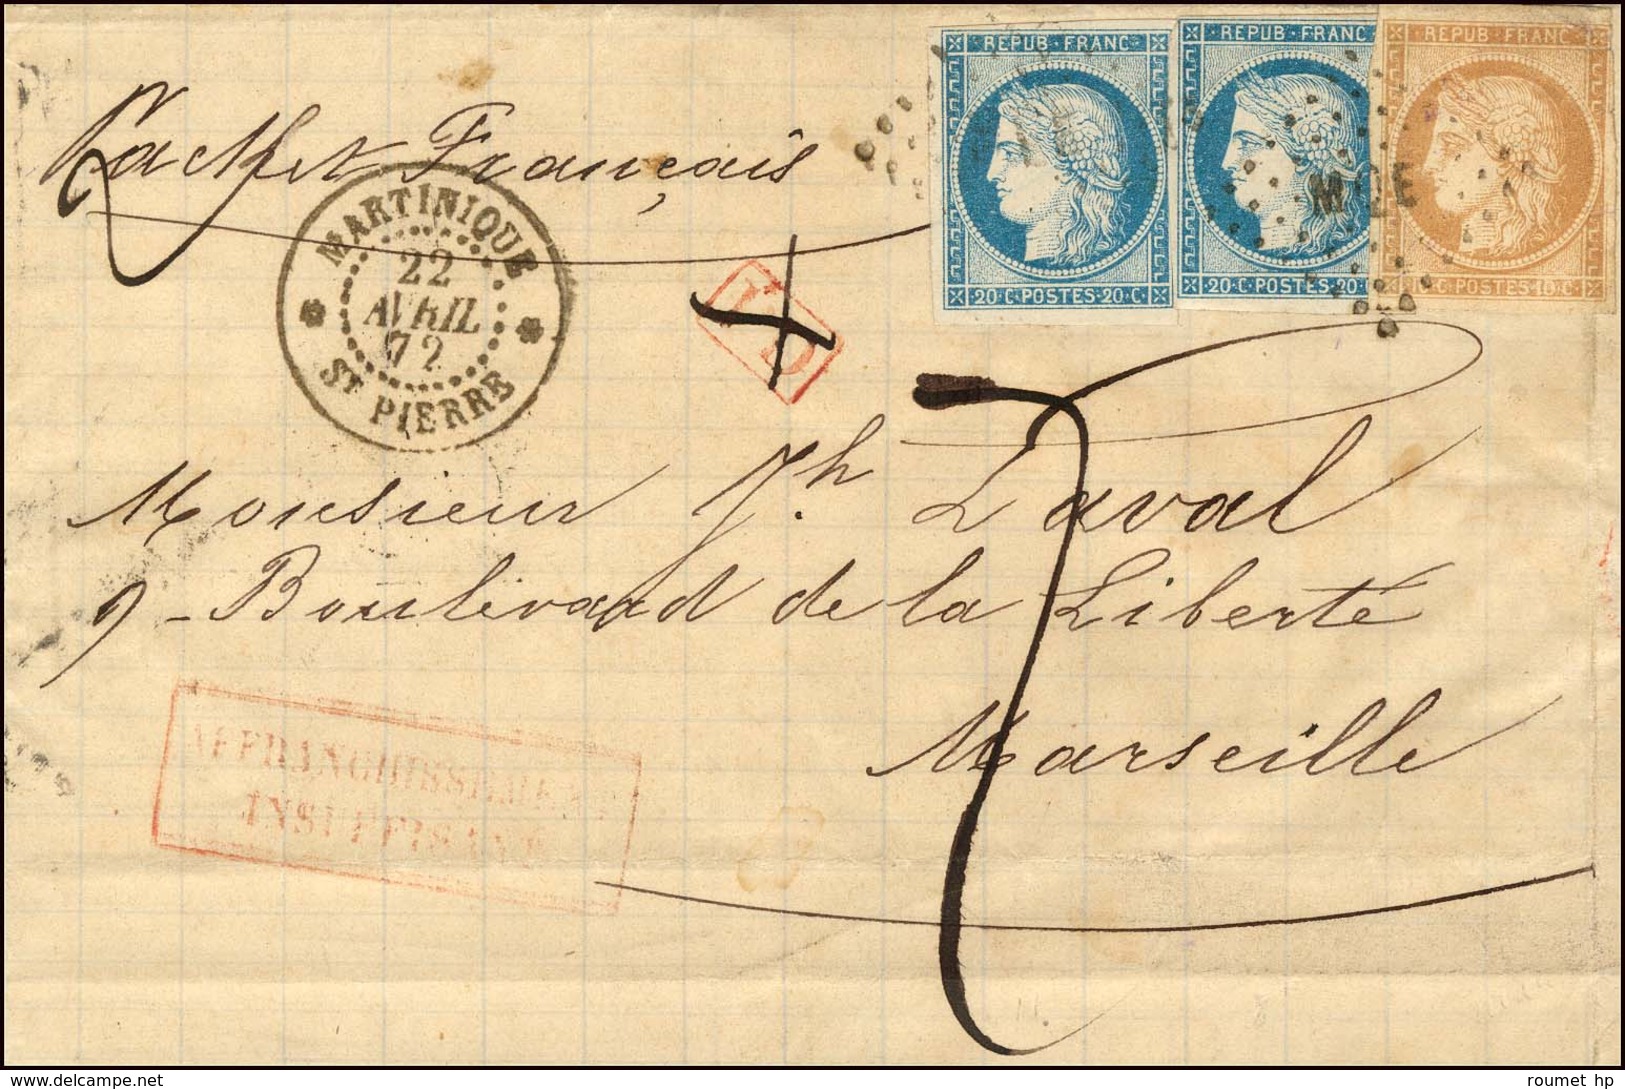 REPUB · FRANC
20 · C · POSTES · 20 · C
REPUB · FRANC
20 · C · POSTES · 20
REPUB · FRANC
POSTES · 10 · C
MQE
Français
MARTINIQUE
22
AVRIL
72
ST PIERRE
PD
Monsieur Jh. Laval
9 - Boulevard de la Liberté
Marseille
AFFRANCHISSEMENT
INSUFFISANT
delcampe.net
roumet hp